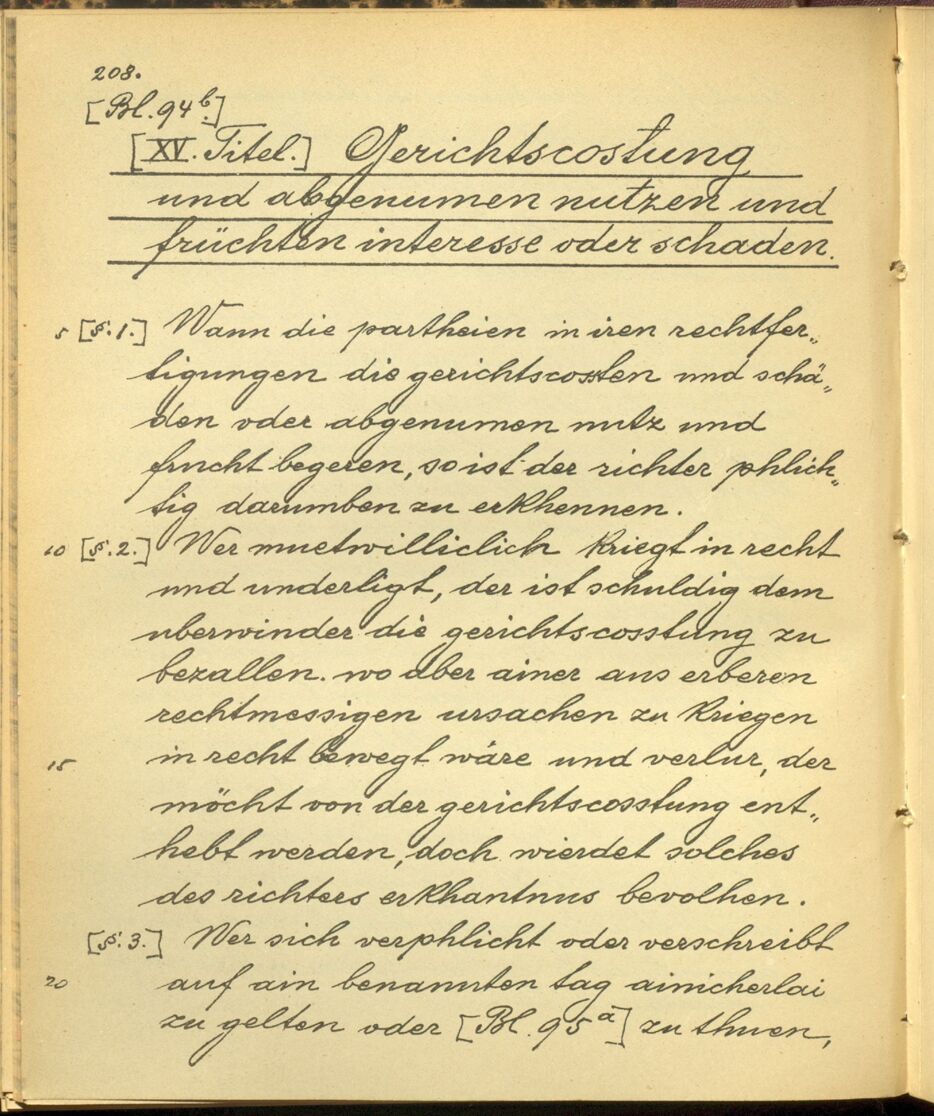 208.
[Bl. 94 b.]
[XV. Titel.] Gerichtscostung
und abgenumen nutzen und
früchten interesse oder schaden.
5 [§. 1.] Wann die partheien in iren rechtfer„
tigungen die gerichtscosten und schä„
den oder abgenumen nutz und
frucht begeren, so ist der richter phlich„
tig darumben zu erkhennen.
10 [§. 2.] Wer muetwilliclich kriegt in recht
und underligt, der ist schuldig dem
uberwinder die gerichtscosstung zu
bezallen. wo aber ainer aus erberen
rechtmessigen ursachen zu kriegen
15 in recht bewegt wäre und verlur, der
möcht von der gerichtscosstung ent„
hebt werden, doch wierdet solches
des richters erkhantnus bevolhen.
[§. 3.] Wer sich verphlicht oder verschreibt
20 auf ain benannten tag ainicherlai
zu gelten oder [Bl. 95 a] zu thuen,